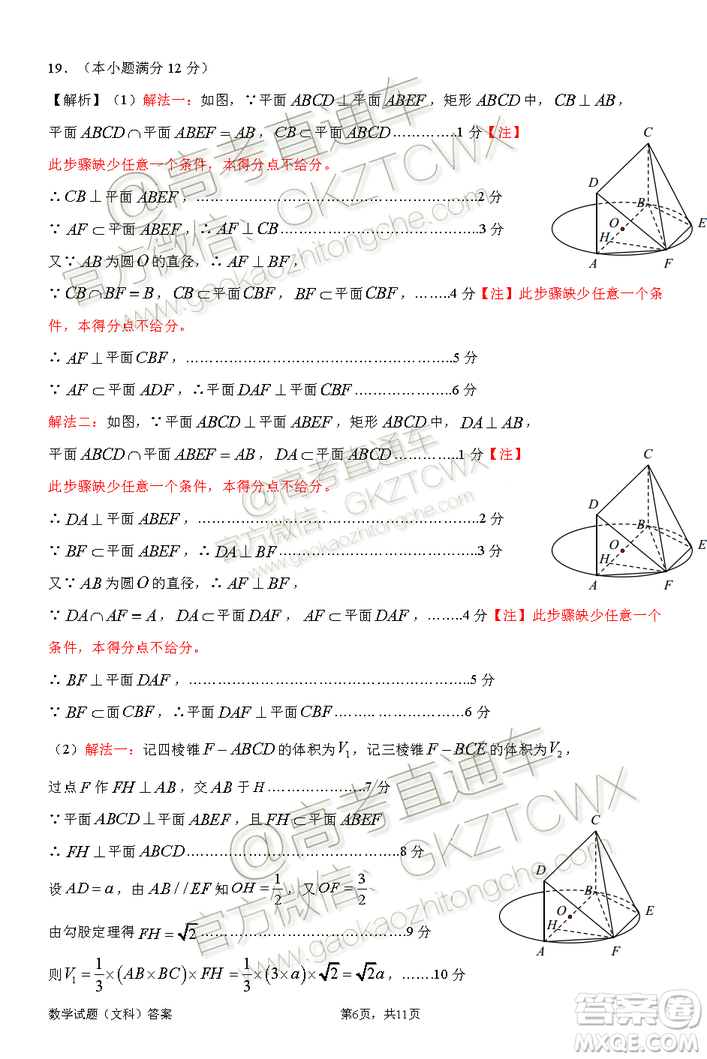 19．（本小题满分 12 分）
【解析】（1）解法一：如图，∵平面 ABCD⊥平面 ABEF，矩形 ABCD 中，CB⊥AB，
平面 ABCD∩平面 ABEF=AB，CB⊂平面 ABCD…………1 分【注】
此步骤缺少任意一个条件，本得分点不给分。
∴ CB⊥平面 ABEF，…………………………………………2分
∵ AF⊂平面 ABEF，∴ AF⊥CB，……………………………3分
又∵ AB 为圆 O 的直径，∴ AF⊥BF，
∵ CB∩BF=B，CB⊂平面 CBF，BF⊂平面 CBF，……..4 分【注】此步骤缺少任意一个条
件，本得分点不给分。
∴ AF⊥平面 CBF，…………………………………………5 分
∵ AF⊂平面 ADF，∴平面 DAF⊥平面 CBF…………………6分
解法二：如图，∵平面 ABCD⊥平面 ABEF，矩形 ABCD 中，DA⊥AB，
平面 ABCD∩平面 ABEF=AB，DA⊂平面 ABCD…………..1 分【注】
此步骤缺少任意一个条件，本得分点不给分。
∴ DA⊥平面 ABEF，…………………………………………2分
∵ BF⊂平面 ABEF，∴ DA⊥BF，……………………………3分
又∵ AB 为圆 O 的直径，∴ AF⊥BF，
∵ DA∩AF=A，DA⊂平面 DAF，AF⊂平面 DAF，……..4 分【注】此步骤缺少任意一个
条件，本得分点不给分。
∴ BF⊥平面 DAF，…………………………………………5 分
∵ BF⊂面 CBF，∴平面 DAF⊥平面 CBF……………………6分
（2）解法一：记四棱锥 F－ABCD 的体积为 V₁，记三棱锥 F－BCE 的体积为 V₂，
过点 F 作 FH⊥AB，交 AB 于 H……………7 分
∵平面 ABCD⊥平面 ABEF，且 FH⊂平面 ABEF
∴ FH⊥平面 ABCD……………………………8 分
设 AD=a，由 AB//EF 知 OH=1/2，又 OF=3/2
由勾股定理得 FH=√2…………………………9 分
则 V₁=1/3×(AB×BC)×FH=1/3×(3×a)×√2=√2a，…….10 分
数学试题（文科）答案 第6页，共11页
C
D
B
O
E
H
A
F
C
D
B
O
E
H
A
F
C
D
B
O
E
H
A
F
@高考直通车
官方微信：GKZTCWX
www.gaokaozhitongche.com
@高考直通车
官方微信：GKZTCWX
www.gaokaozhitongche.com
@高考直通车
官方微信：GKZTCWX
www.gaokaozhitongche.com